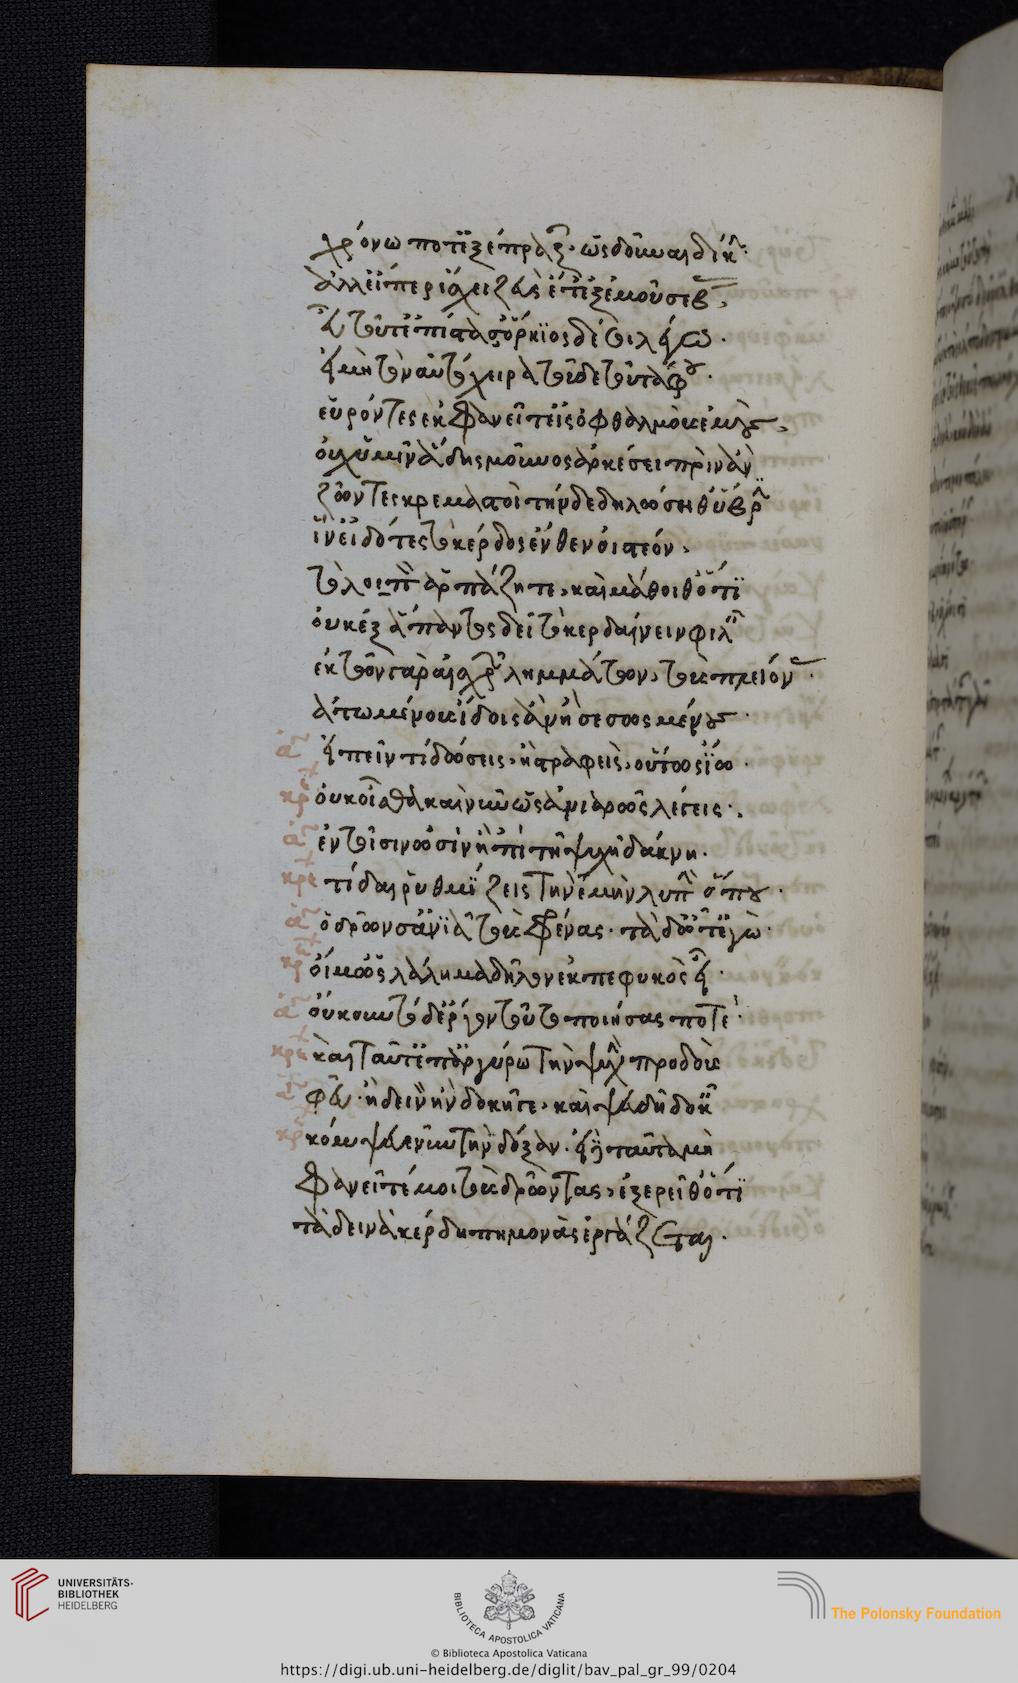 χρόνω ποτ' ἐξέπραξαν ὡς δοῦναι δίκην·
ἀλλ' εἴπερ ἴσχει ζεὺς ἔτ' ἐξ ἐμοῦ σέβας,
εὖ τοῦτ' ἐπίστασ' ὅρκιος δέ σοι λέγω·
εἰ μὴ τὸν αὐτόχειρα τοῦδε τοῦ τάφου
εὑρόντες ἐκφανεῖτ' εἰς ὀφθαλμοὺς ἐμούς,
οὐχ ὑμῖν ἅδης μοῦνος ἀρκέσει πρὶν ἂν
ζῶντες κρεμαστοὶ τήνδε δηλώσηθ' ὕβριν
ἵν' εἰδότες τὸ κέρδος ἔνθεν οἰστέον,
τὸ λοιπὸν ἁρπάζητε, καὶ μάθοιθ' ὅτι
οὐκ ἐξ ἅπαντος δεῖ τὸ κερδαίνειν φιλεῖν
ἐκ τῶν γὰρ αἰσχρῶν λημμάτων, τοὺς πλείονας
ἀτωμένους ἴδοις ἂν ἢ σεσωσμένους·
εἰπεῖν τί δώσεις, ἢ στραφεὶς, οὕτως ἴω·
οὐκ οἶσθα καὶ νῦν ὡς ἀνιαρῶς λέγεις·
ἐν τοῖσιν ὠσὶν ἢ 'πὶ τῇ ψυχῇ δάκνη·
τί δαὶ ῥυθμίζεις τὴν ἐμὴν λύπην ὅπου·
ὁ δρῶν σ' ἀνιᾷ τὰς φρένας· τὰ δ' ὦτ' ἐγώ·
οἴμ' ὡς λάλημα δῆλον ἐκπεφυκὸς εἶ·
οὔκουν τό δ' ἔργον τοῦτο ποιήσας ποτέ·
καὶ ταῦτ' ἐπ' ἀργύρω τὴν ψυχὴν προδούς
φεῦ· ἦ δεινὸν ἢν δοκῆ γε, καὶ ψευδῆ δοκεῖν
κόμψευε νῦν τὴν δόξαν· εἰ δὲ ταῦτα μὴ
φανεῖτέ μοι τοὺς δρῶντας, ἐξερεῖθ' ὅτι
τὰ δεινὰ κέρδη πημονὰς ἐργάζεται·
UNIVERSITÄTS-
BIBLIOTHEK
HEIDELBERG
BIBLIOTECA APOSTOLICA VATICANA
The Polonsky Foundation
© Biblioteca Apostolica Vaticana
https://digi.ub.uni-heidelberg.de/diglit/bav_pal_gr_99/0204